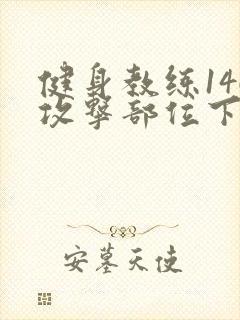 健身教练14
攻撃部位下
安墓天使